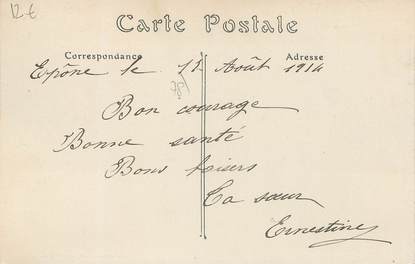 12 €
Carte Postale
Correspondance Adresse
Epône le 11 Août 1914
Bon courage
Bonne santé
Bons baisers
Ta sœur
Ernestine